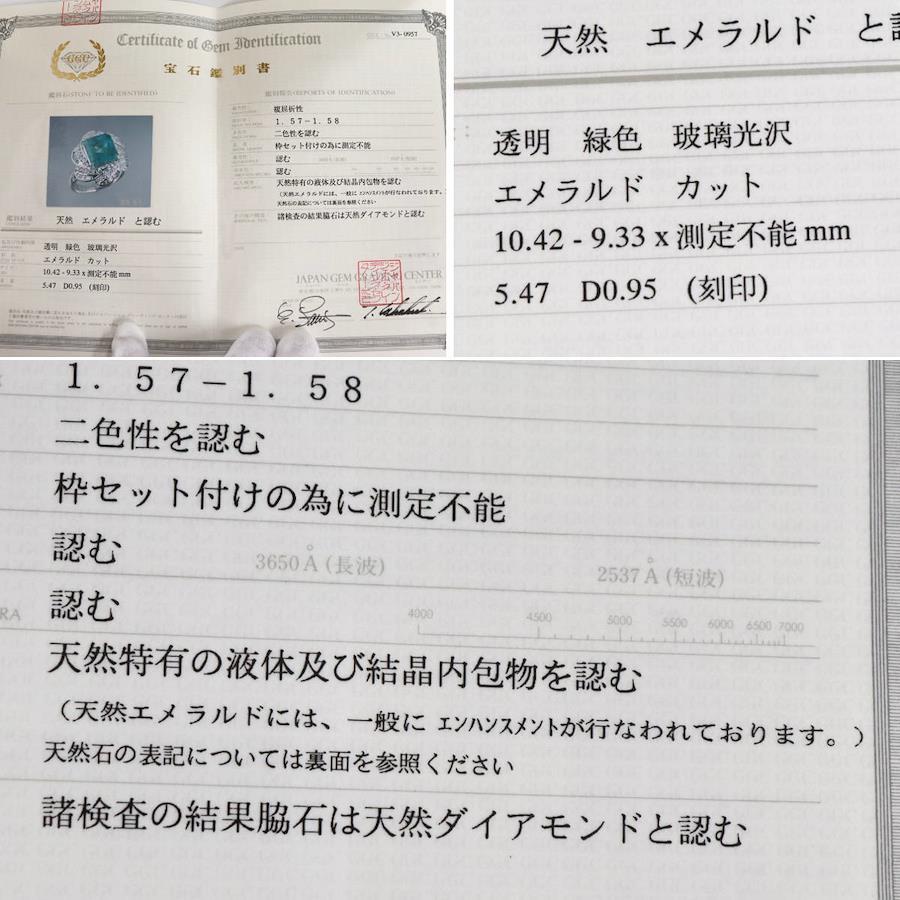 Certificate of Gem Identification
V3-0957
GGU
宝石鑑別書
鑑別石(STONE TO BE IDENTIFIED)
鑑別報告(REPORTS OF IDENTIFICATION)
複屈折性
1.57-1.58
二色性を認む
枠セット付けの為に測定不能
認む
認む
天然特有の液体及び結晶内包物を認む
(天然エメラルドには、一般に エンハンスメントが行なわれております。)
天然石の表記については裏面を参照ください
諸検査の結果脇石は天然ダイアモンドと認む
鑑別結果
天然 エメラルド と認む
透明 緑色 玻璃光沢
エメラルド カット
10.42 - 9.33 x 測定不能 mm
5.47 D0.95 (刻印)
天然 エメラルド と認
透明 緑色 玻璃光沢
エメラルド カット
10.42 - 9.33 x 測定不能 mm
5.47 D0.95 (刻印)
1.57-1.58
二色性を認む
枠セット付けの為に測定不能
認む
3650Å(長波) 2537Å(短波)
RA 認む
4000 4500 5000 5500 6000 6500 7000
天然特有の液体及び結晶内包物を認む
(天然エメラルドには、一般に エンハンスメントが行なわれております。)
天然石の表記については裏面を参照ください
諸検査の結果脇石は天然ダイアモンドと認む